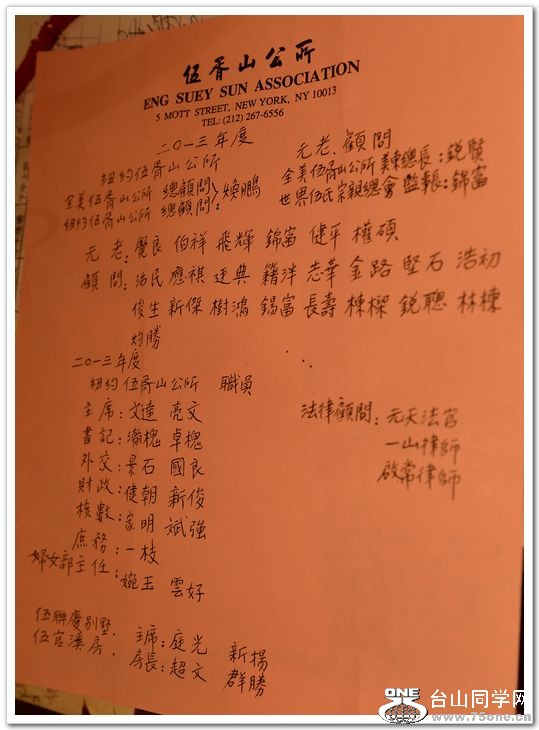 伍胥山公所
ENG SUEY SUN ASSOCIATION
5 MOTT STREET, NEW YORK, NY 10013
TEL: (212) 267-6556
二〇一三年度
紐約伍胥山公所
全美伍胥山公所 總顧問
紐約伍胥山公所 總顧問：煥鵬
元老、顧問
全美伍胥山公所美東總長：銳賢
世界伍氏宗親總會 監事長：錦富
元 老：覺良 伯祥 飛輝 錦富 健平 權碩
顧 問：治民 應祺 廷典 籍泮 志華 金路 堅石 浩初
俊生 新傑 樹鴻 錫富 長壽 棟樑 銳聰 林棟
灼勝
二〇一三年度
紐約伍胥山公所 職員
主席：文達 亮文
書記：瀚槐 卓槐
外交：景石 國良
財政：健朝 新俊
核數：家明 斌強
庶務：一枝
婦女部主任：婉玉 雲好
法律顧問：元天法官
一山律師
啟常律師
伍聯慶別墅，主席：庭光 新揚
伍官澳房，房長：超文 群勝
ONE
台山同学网
www.75one.cn